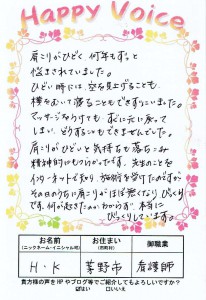 Happy Voice
肩こりがひどく 何年もずっと
悩まされていました。
ひどい時には、空を見上げることも
横をむいて寝ることもできずにいました。
マッサージを力けても すぐに元に戻って
しまい どうすることもできませんでした。
肩こりがひどいと気持ちも落ちこみ
精神的にもつらかったです。先生のことを
インターネットで知り、施術を受けたのですが
その日のうちに肩こりがほぼ無くなり びっくり
です。何が起きたのかわからず 本当に
びっくりしています。
お名前
(ニックネーム・イニシャル可)
お住まい
(市町村)
御職業
H・K
茅野市
看護師
貴方様の声をHPやブログ等でご紹介してもよろしいですか？
はい
□いいえ